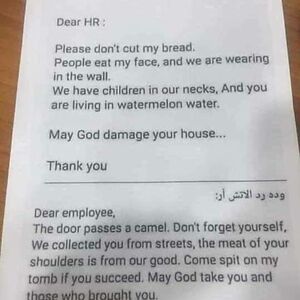 Dear HR :
Please don't cut my bread.
People eat my face, and we are wearing
in the wall.
We have children in our necks, And you
are living in watermelon water.
May God damage your house...
Thank you
وده رد الاتش أر:
Dear employee,
The door passes a camel. Don't forget yourself,
We collected you from streets, the meat of your
shoulders is from our good. Come spit on my
tomb if you succeed. May God take you and
those who brought you.